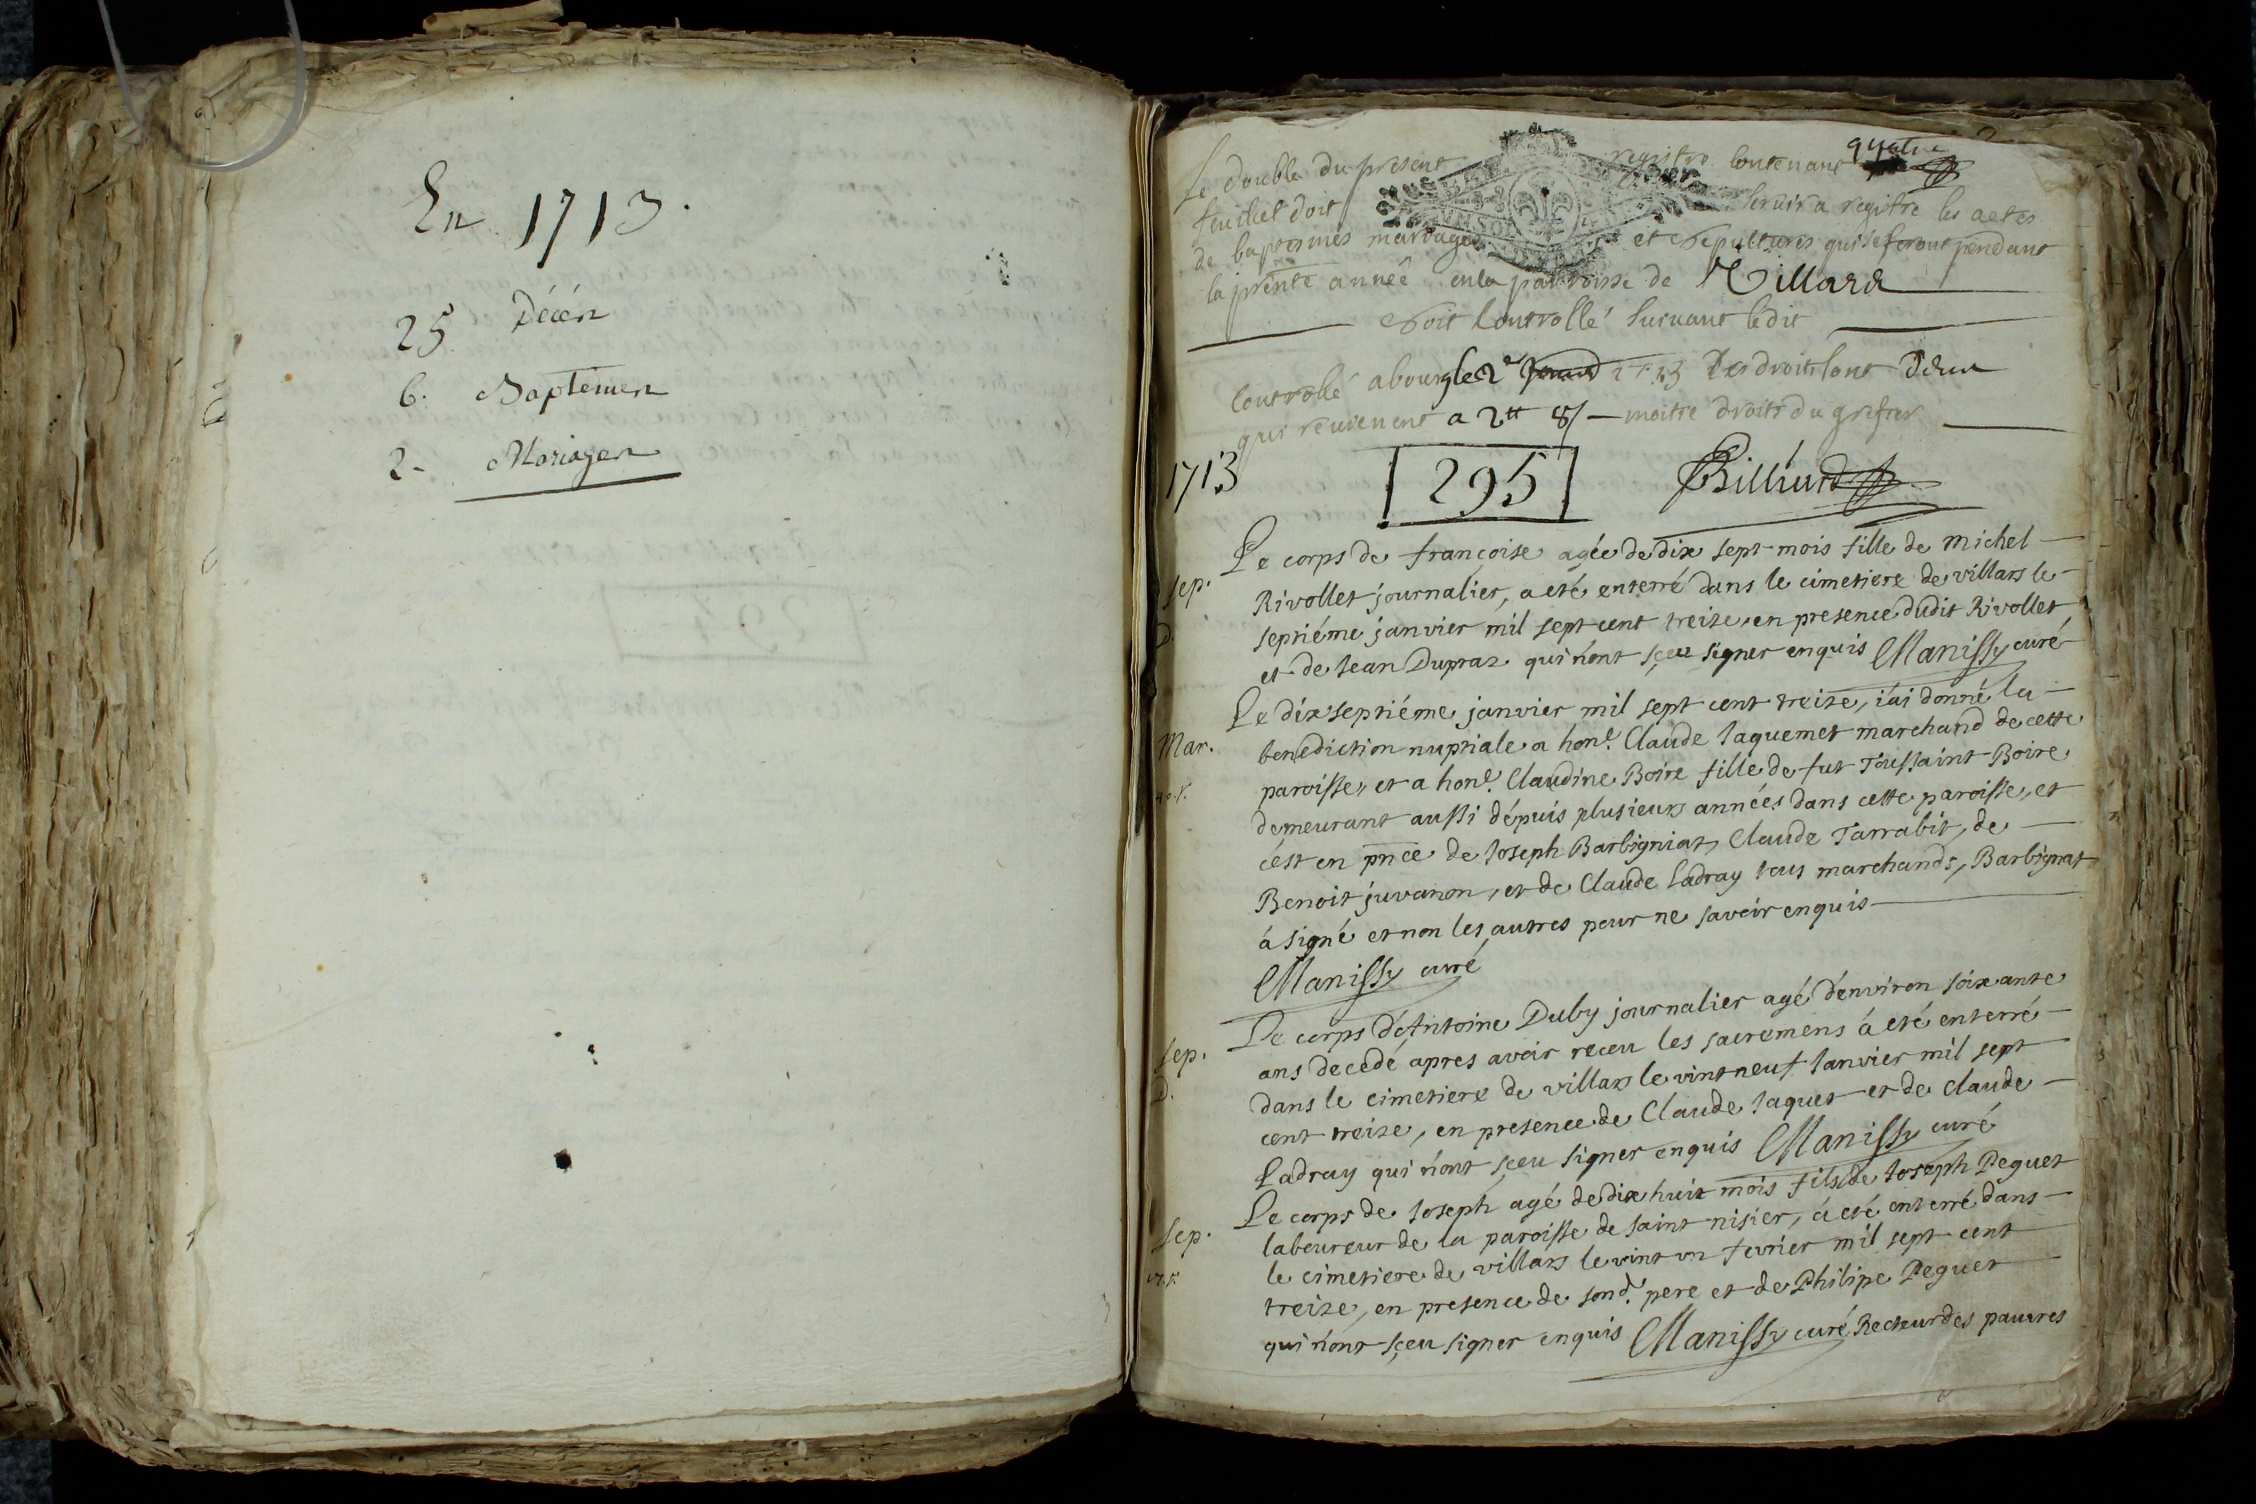 En 1713.
25 Décés
6. Baptemes
2- Mariages
Le double du present registre contenant quatre
feuillet doit servir a registre les actes
de baptesmes mariages et sepultures qui se feront pendant
la pnte année en la parroisse de Villars
soit controllé suivant ledit
Controllé a bourg le 2e 1713 Les droits sont
qui revienent a 2tt 8s moitie droits du grefier
1713
295
Billiard
sep.
D.
Le corps de françoise agée de dix sept mois fille de Michel
Rivollet journalier, a eté enterré dans le cimetiere de villars le
septiéme janvier mil sept cent treize, en presence dudit Rivollet
et de Jean Dupraz qui n'ont sçeu signer enquis Manissy curé
Mar.
Le dix septiéme janvier mil sept cent treize, i'ai donné la
benediction nuptiale a hon.e Claude Jaquemet marchand de cette
paroisse, et a hon.e Claudine Boire fille de fut Toussaint Boire
demeurant aussi dépuis plusieurs années dans cette paroisse, et
c'est en pnce de Joseph Barbigniat, Claude Tarrabit, de
Benoit juvanon, et de Claude Ladray tous marchands, Barbignat
á signé et non les autres pour ne savoir enquis
Manissy curé
sep.
D.
Le corps d'Antoine Duby journalier agé d'environ soixante
ans decedé apres avoir receu les sacremens á eté enterré
dans le cimetiere de villars le vint neuf Janvier mil sept
cent treize, en presence de Claude Jaquet et de Claude
Ladray qui n'ont sçeu signer enquis Manissy curé
Sep.
Le corps de Joseph agé de dix huit mois fils de Joseph Peguet
laboureur de la paroisse de saint nisier, á eté enterré dans
le cimetiere de villars le vint un fevrier mil sept cent
treize, en presence de sond. pere et de Philipe Peguet
qui n'ont sçeu signer enquis Manissy curé Recteur des pauvres